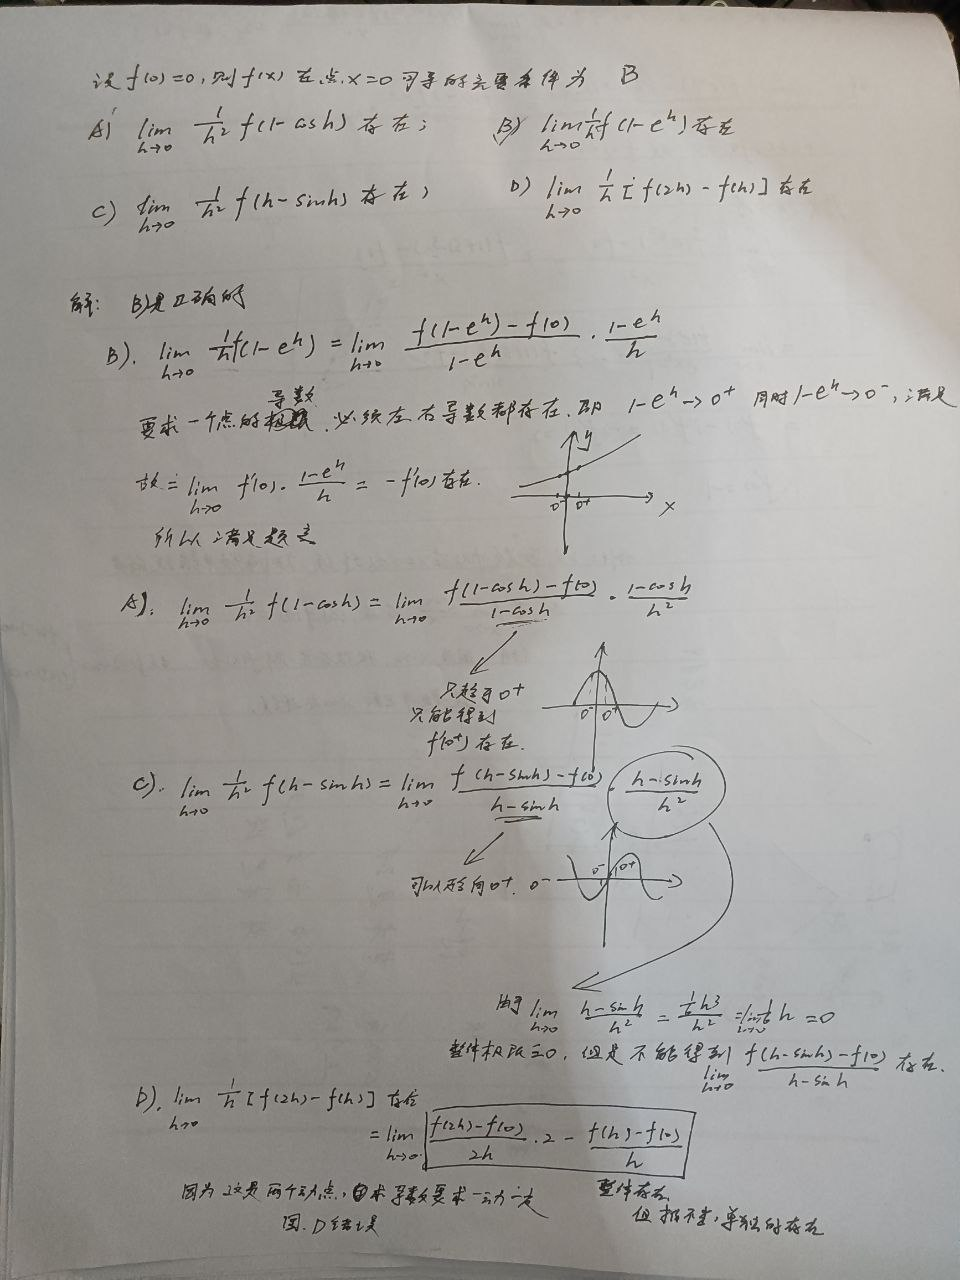 设 f(0)=0, 则 f(x) 在点 x=0 可导的充要条件为 B
A) lim h→0 1/h² f(1-cosh) 存在; B) lim h→0 1/h f(1-e^h) 存在
C) lim h→0 1/h² f(h-sinh) 存在; D) lim h→0 1/h [f(2h)-f(h)] 存在
解: B)是正确的
B). lim h→0 1/h f(1-e^h) = lim h→0 (f(1-e^h)-f(0))/(1-e^h) · (1-e^h)/h
要求一个点的导数, 必须左右导数都存在. 即 1-e^h→0⁺ 同时 1-e^h→0⁻, 满足
故= lim h→0 f'(0)·(1-e^h)/h = -f'(0) 存在.
y
0⁻ 0⁺ x
所以满足题意
A). lim h→0 1/h² f(1-cosh) = lim h→0 (f(1-cosh)-f(0))/(1-cosh) · (1-cosh)/h²
只趋于0⁺
只能得到
f'(0⁺) 存在.
0⁻ 0⁺
C). lim h→0 1/h² f(h-sinh) = lim h→0 (f(h-sinh)-f(0))/(h-sinh) · (h-sinh)/h²
可以趋向0⁺, 0⁻
0⁻ 0⁺
由于 lim h→0 (h-sinh)/h² = (1/6 h³)/h² = lim h→0 1/6 h = 0
整体极限=0, 但是不能得到 lim h→0 (f(h-sinh)-f(0))/(h-sinh) 存在.
D). lim h→0 1/h [f(2h)-f(h)] 存在
= lim h→0 (f(2h)-f(0))/2h · 2 - (f(h)-f(0))/h
因为这是两个动点, 求导数要求一动一定
整体存在
但推不出, 单独的存在
D错误